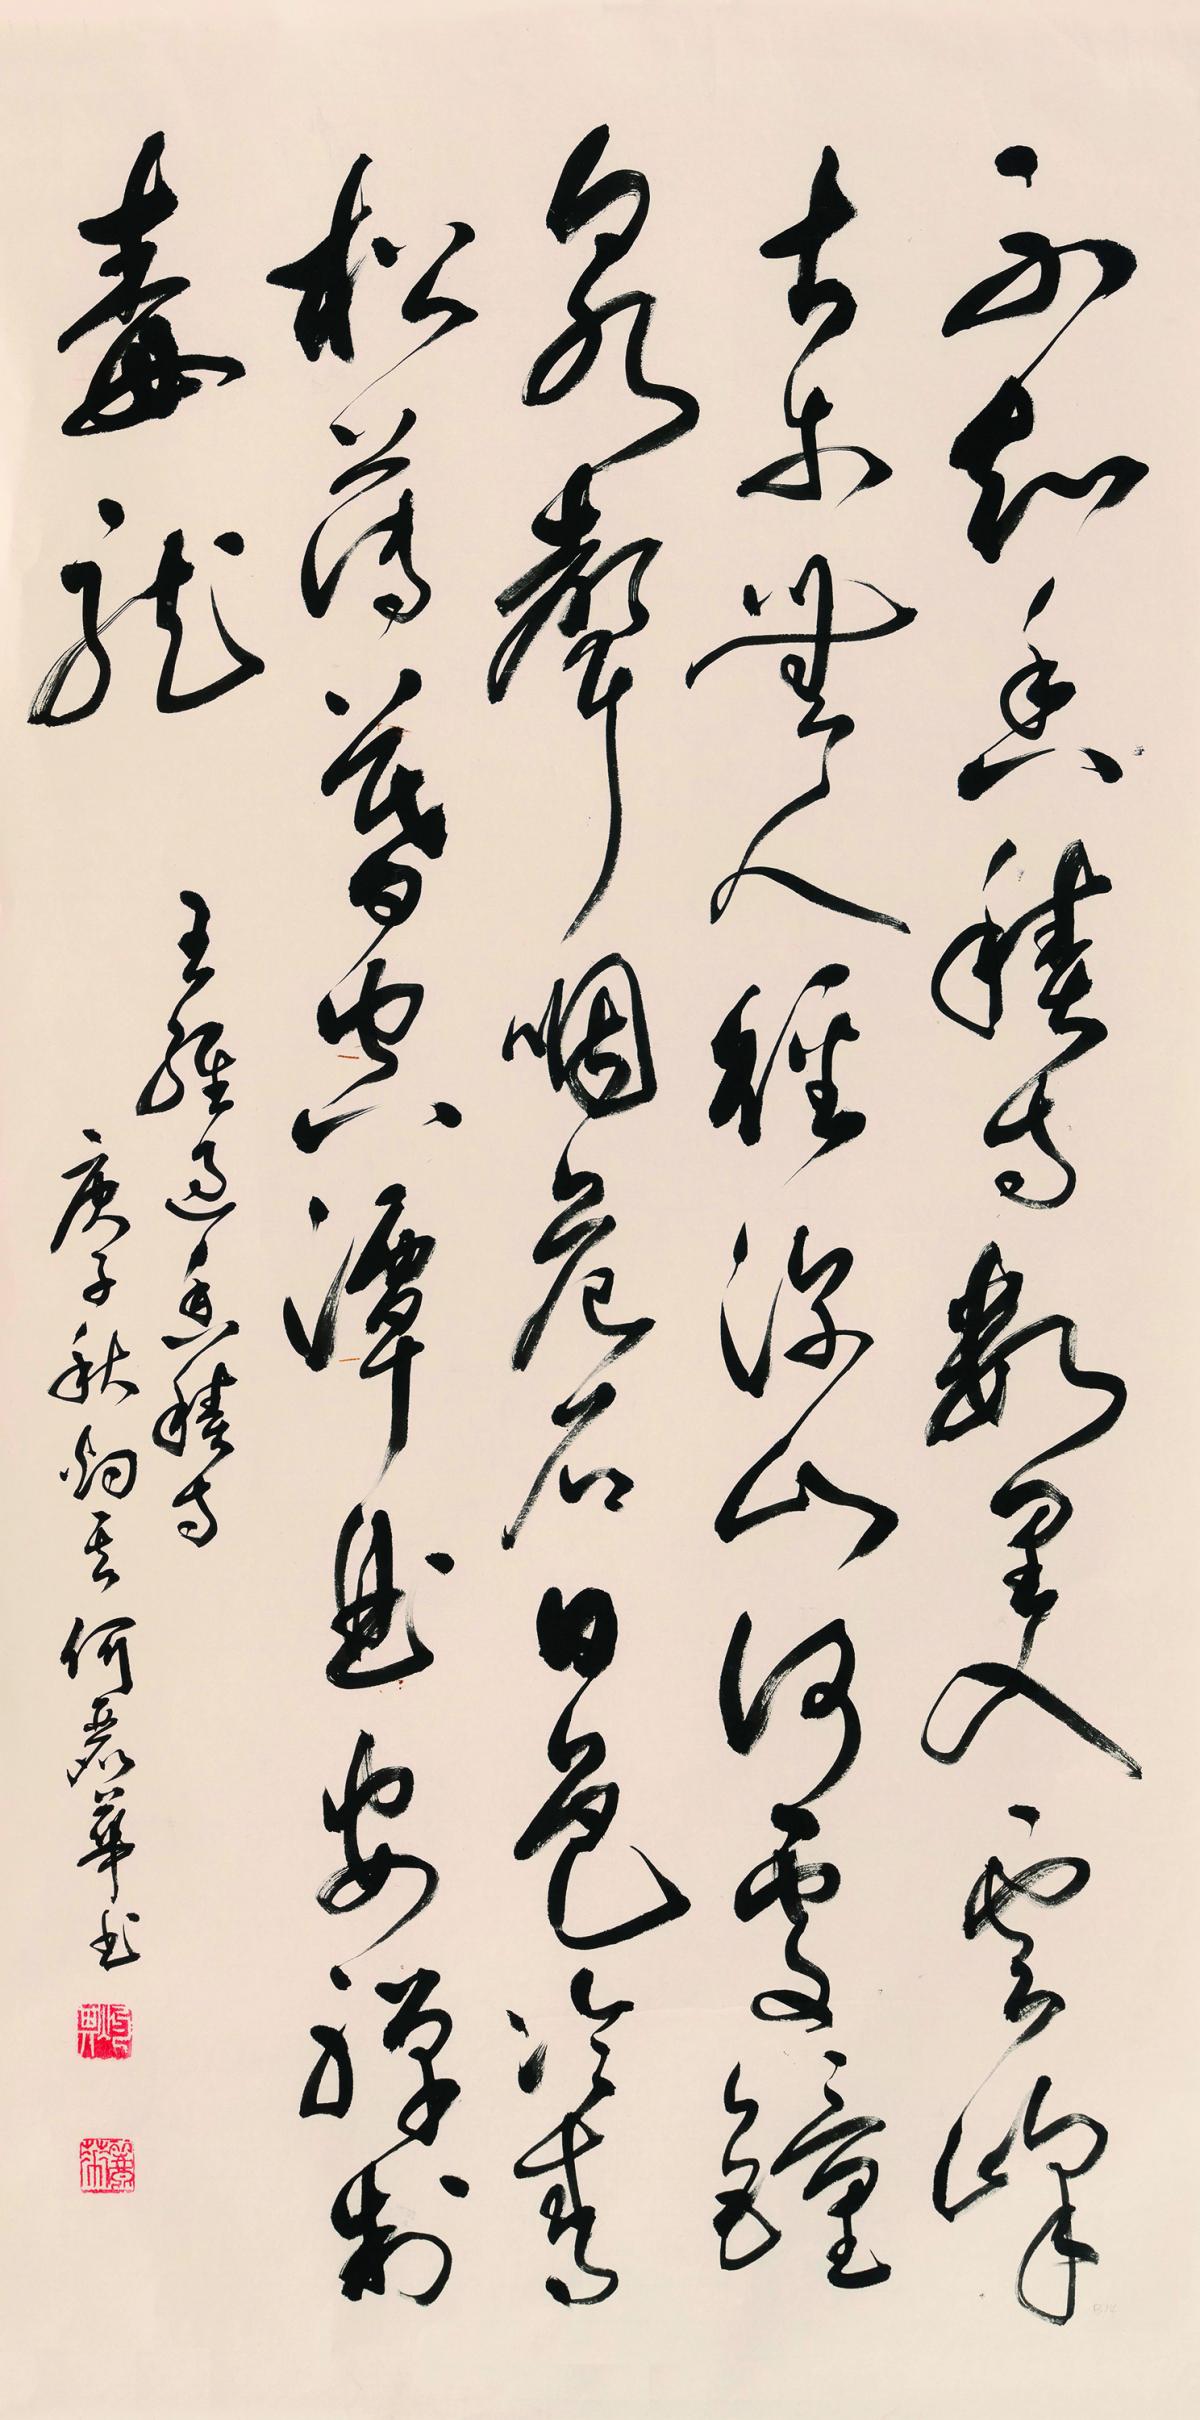 不知香積寺數里入雲峰
古木無人徑深山何處鐘
泉聲咽危石日色冷青
松薄暮空潭曲安禪制
毒龍
王維過香積寺
庚子秋灼其何麗華書